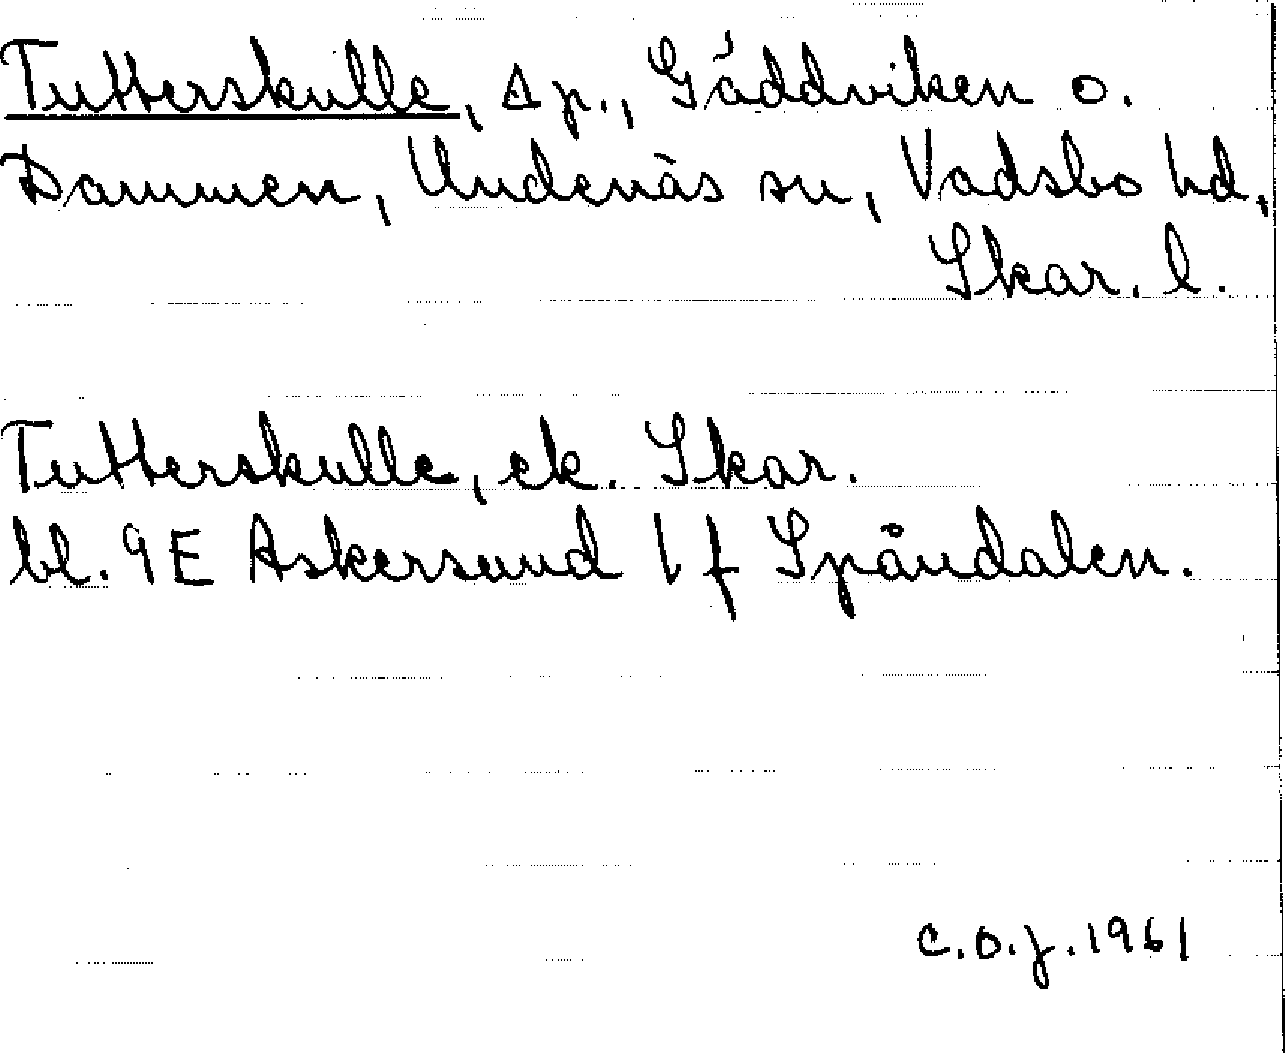 Tutterskulle, Δ p., Gäddviken o.
Dammen, Undenäs sn, Vadsbo hd,
Skar. l.
Tutterskulle, ek. Skar.
bl. 9E Askersund 1 f Spåndalen.
C.O.J. 1961